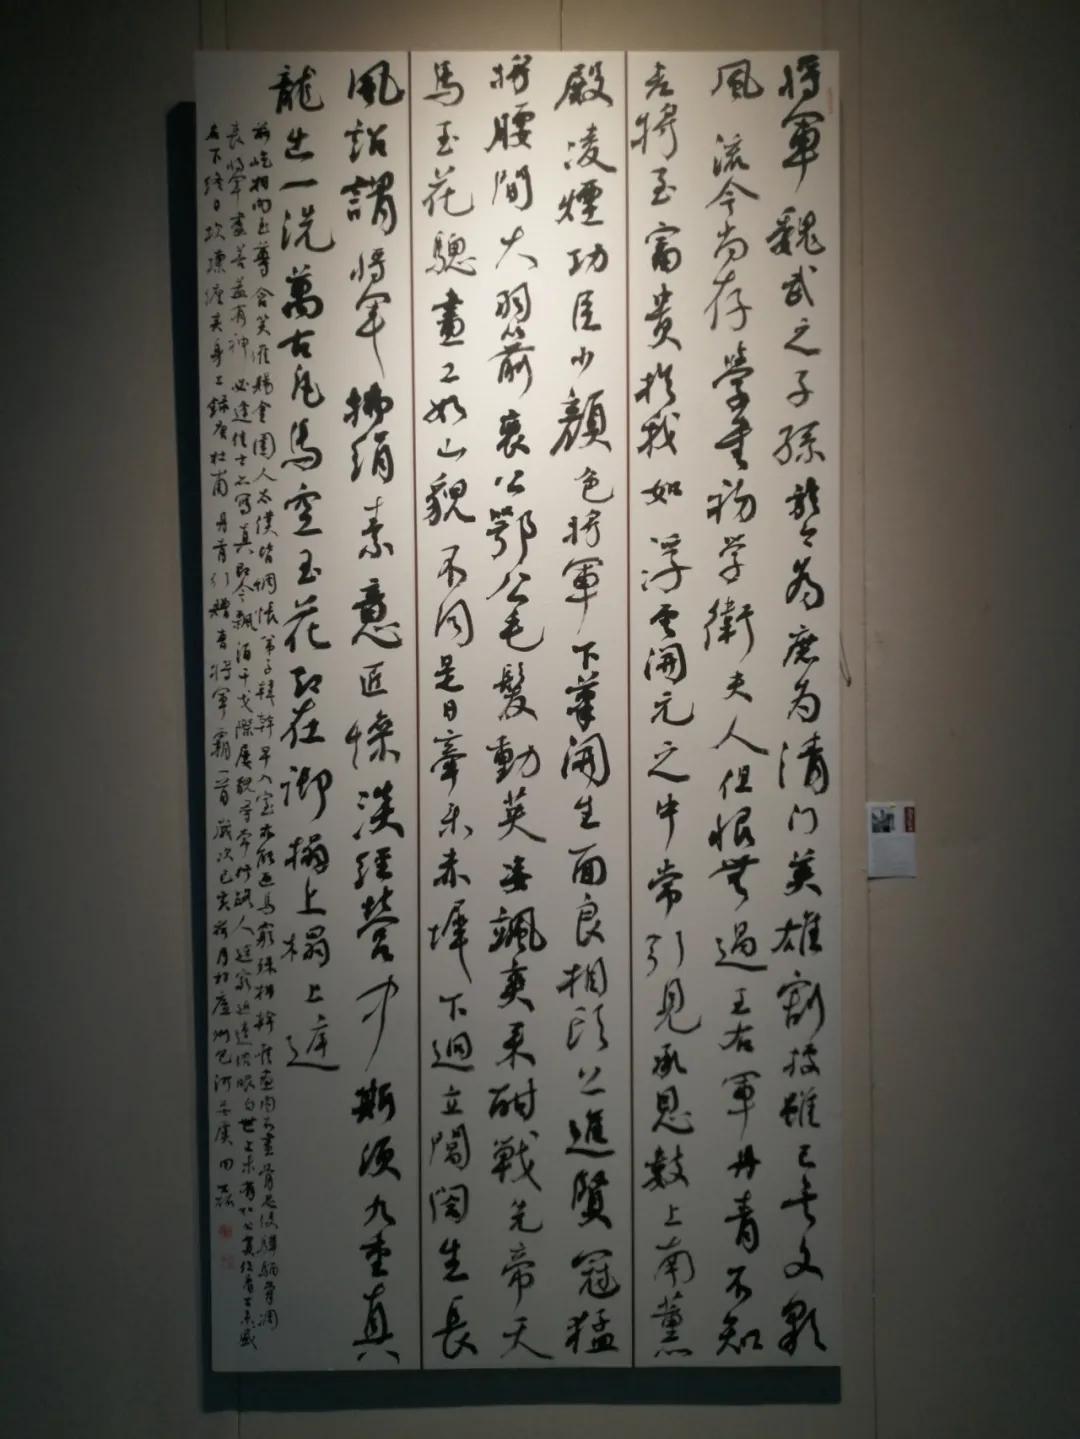 將軍魏武之子孫於今為庶為清門英雄割據雖已矣文彩
風流今尚存學書初學衛夫人但恨無過王右軍丹青不知
老將至富貴於我如浮雲開元之中常引見承恩數上南薰
殿凌煙功臣少顏色將軍下筆開生面良相頭上進賢冠猛
將腰間大羽箭褒公鄂公毛髮動英姿颯爽來酣戰先帝天
馬玉花驄畫工如山貌不同是日牽來赤墀下迥立閶闔生長
風詔謂將軍拂絹素意匠慘淡經營中斯須九重真
龍出一洗萬古凡馬空玉花卻在御榻上榻上庭
前屹相向至尊含笑催賜金圉人太僕皆惆悵弟子韓幹早入室亦能畫馬窮殊相幹惟畫肉不畫骨忍使驊騮氣凋
喪將軍畫善蓋有神必逢佳士亦寫真即今飄泊干戈際屢貌尋常行路人途窮反遭俗眼白世上未有如公貧但看古來盛
名下終日坎壈纏其身上錄唐杜甫丹青引贈曹將軍霸一首歲次己亥荷月於廬州包河田磊